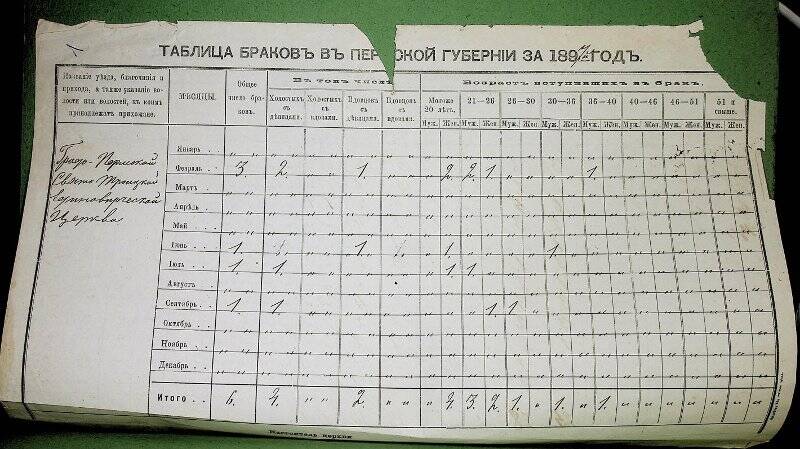 ТАБЛИЦА БРАКОВЪ ВЪ ПЕР СКОЙ ГУБЕРНІИ ЗА 189 ГОДЪ.
Названіе уѣзда, благочинія и прихода, а также указаніе волости или волостей, къ коимъ принадлежатъ прихожане.
МѢСЯЦЫ.
Общее число браковъ.
Въ томъ числѣ
Холостыхъ съ дѣвицами.
Холостыхъ съ вдовами.
Вдовцовъ съ дѣвицами.
Вдовцовъ съ вдовами.
Возрастъ вступившихъ въ бракъ.
Моложе 20 лѣтъ. 21—26 26—30 30—36 36—40 40—46 46—51 51 и свыше.
Муж. Жен. Муж. Жен. Муж. Жен. Муж. Жен. Муж. Жен. Муж. Жен. Муж. Жен. Муж. Жен.
Градо-Пермской
Свято-Троицкой
единовѣрческой
Церкви
Январь . . „ „ „ „ „ „ „ „ „ „ „ „ „ „ „ „ „ „ „ „ „
Февраль . 3 2. „ 1. „ „ 2 2 1 „ „ „ „ 1 „ „ „ „ „ „ „
Мартъ . . „ „ „ „ „ „ „ „ „ „ „ „ „ „ „ „ „ „ „ „ „
Апрѣль . . „ „ „ „ „ „ „ „ „ „ „ „ „ „ „ „ „ „ „ „ „
Май . . „ „ „ „ „ „ „ „ „ „ „ „ „ „ „ „ „ „ „ „ „
Іюнь . . 1. „ „ 1. „ „ 1. „ „ „ „ 1. „ „ „ „ „ „ „ „ „
Іюль . . 1. 1. „ „ „ „ 1 1 „ „ „ „ „ „ „ „ „ „ „ „ „
Августъ . . „ „ „ „ „ „ „ „ „ „ „ „ „ „ „ „ „ „ „ „ „
Сентябрь . 1. 1. „ „ „ „ „ „ 1 1. „ „ „ „ „ „ „ „ „ „ „
Октябрь . . „ „ „ „ „ „ „ „ „ „ „ „ „ „ „ „ „ „ „ „ „
Ноябрь . . „ „ „ „ „ „ „ „ „ „ „ „ „ „ „ „ „ „ „ „ „
Декабрь . . „ „ „ „ „ „ „ „ „ „ „ „ „ „ „ „ „ „ „ „ „
Итого . . 6. 4. „ 2 „ „ 4. 3. 2. 1. „ 1. „ 1. „ „ „ „ „ „ „
Настоятель церкви